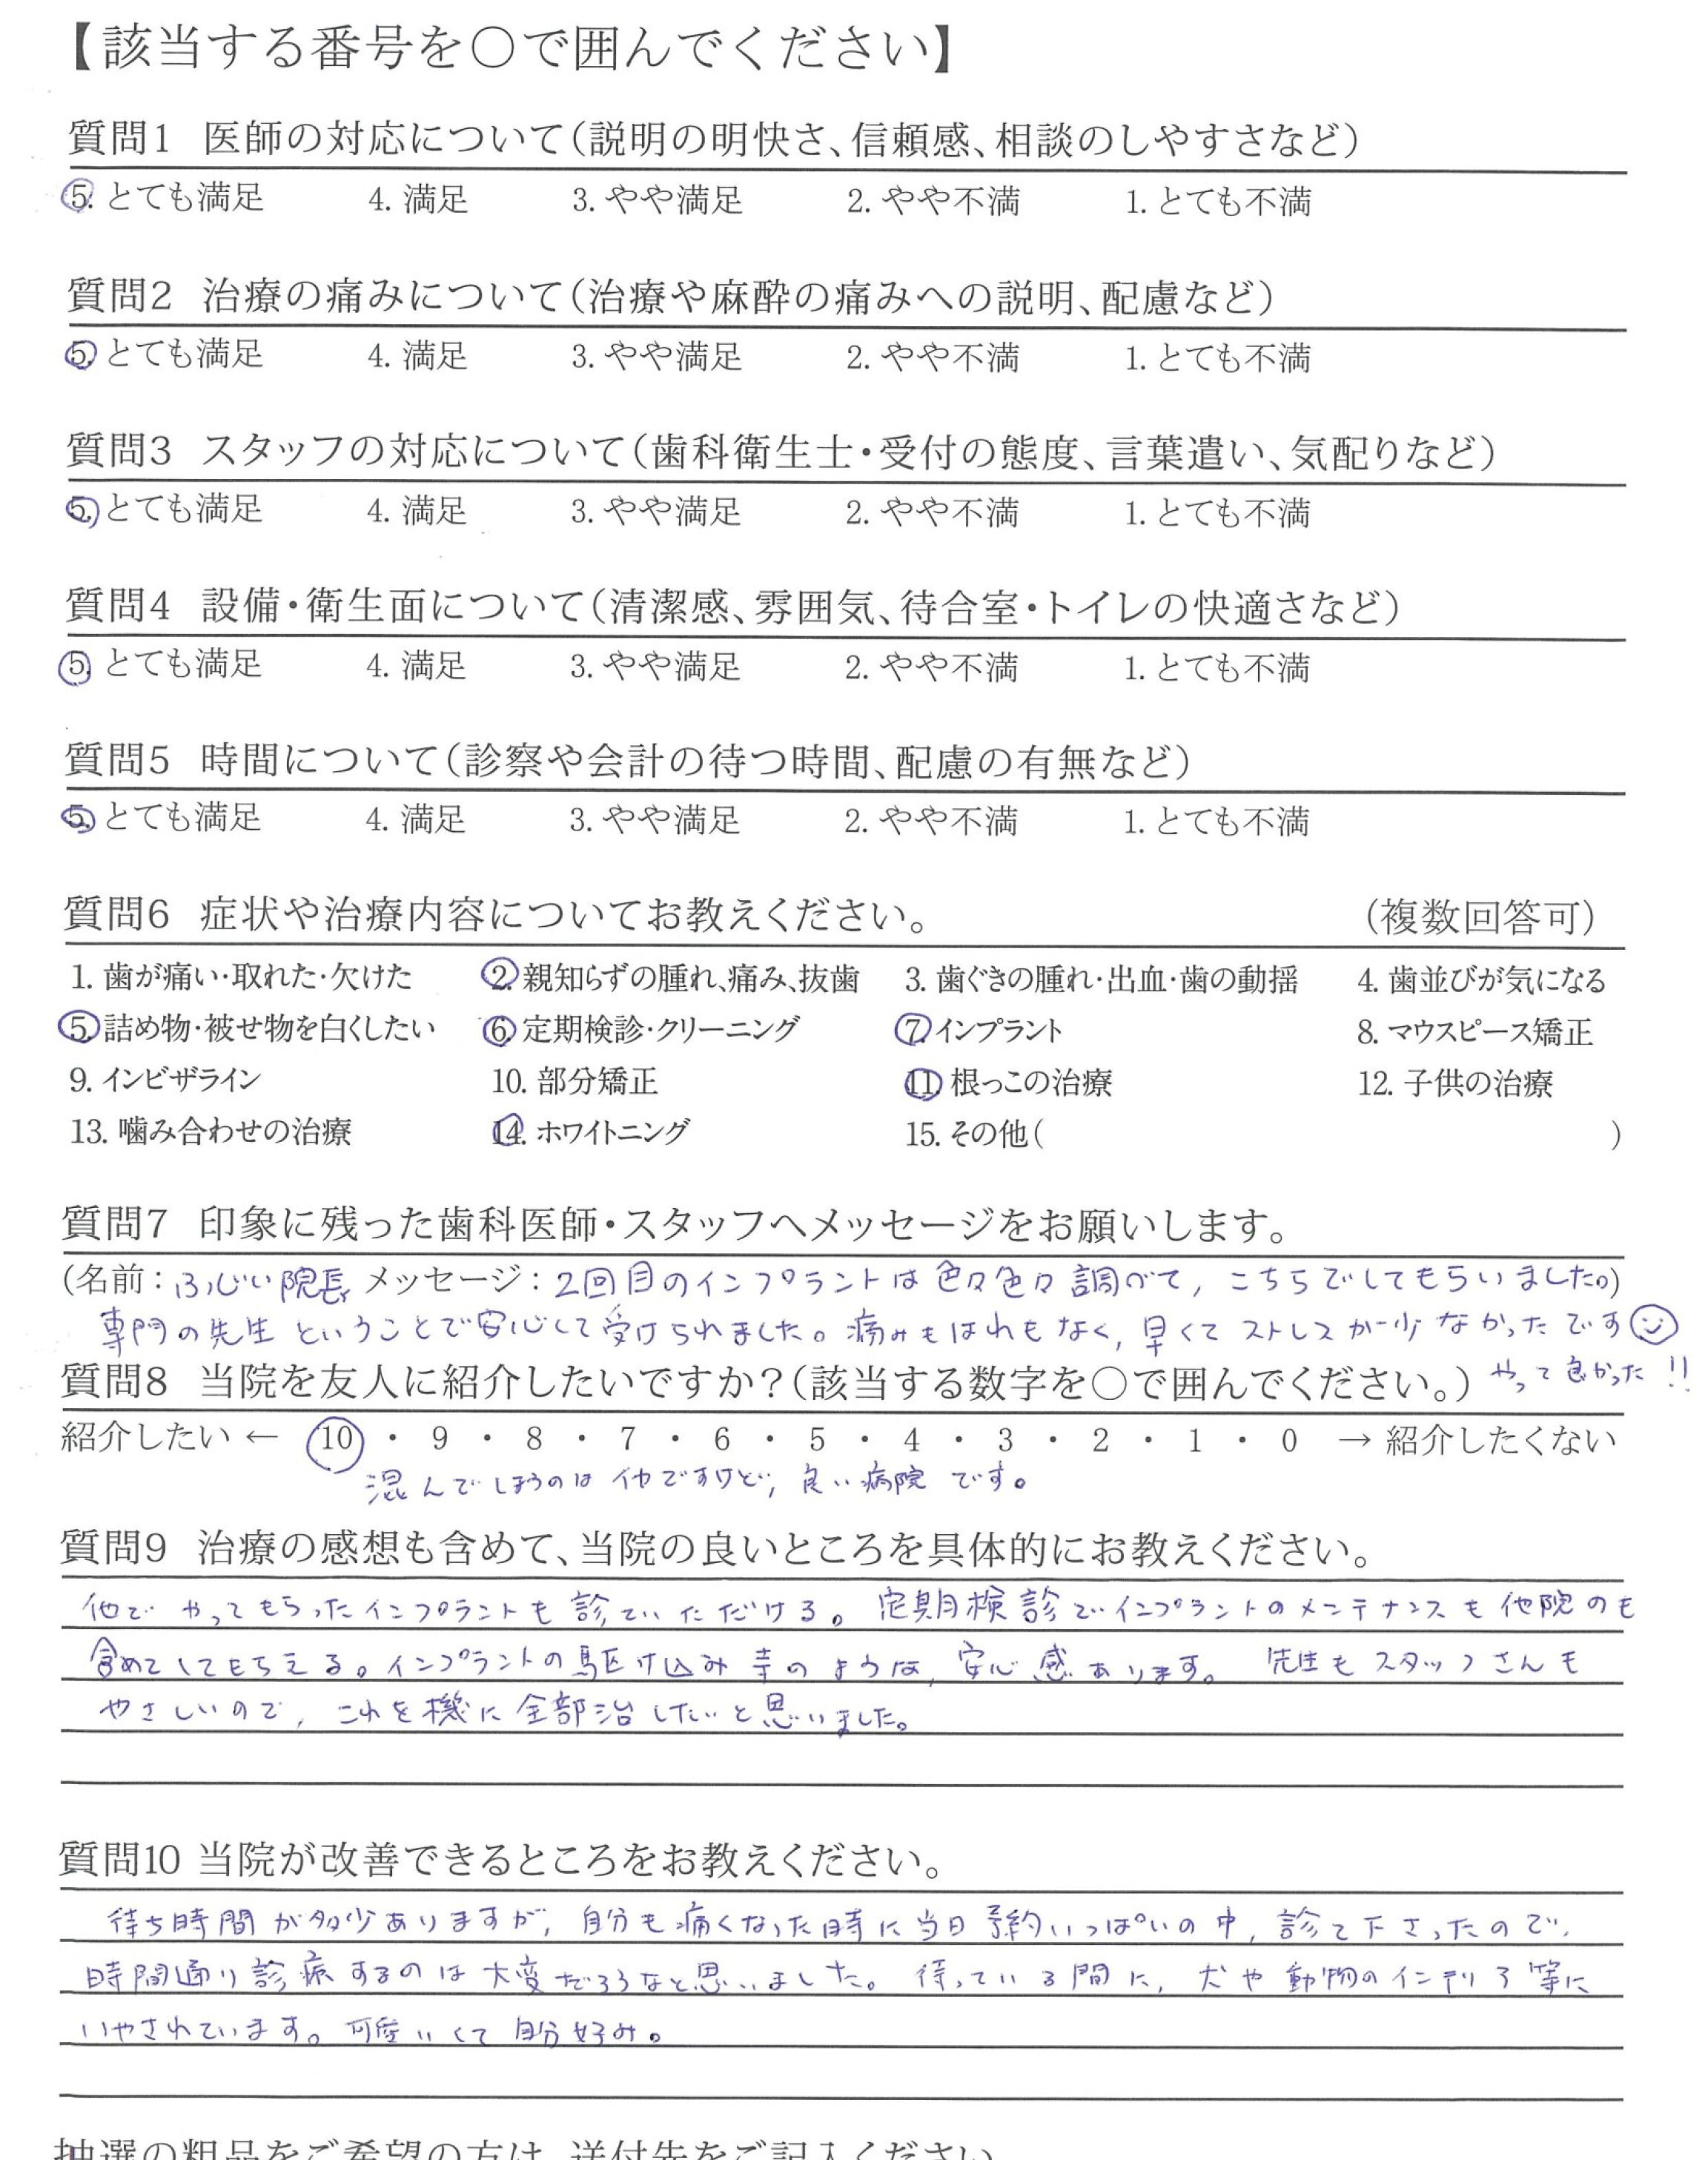 【該当する番号を〇で囲んでください】
質問1 医師の対応について(説明の明快さ、信頼感、相談のしやすさなど)
5. とても満足 4. 満足 3. やや満足 2. やや不満 1. とても不満
質問2 治療の痛みについて(治療や麻酔の痛みへの説明、配慮など)
5. とても満足 4. 満足 3. やや満足 2. やや不満 1. とても不満
質問3 スタッフの対応について(歯科衛生士・受付の態度、言葉遣い、気配りなど)
5. とても満足 4. 満足 3. やや満足 2. やや不満 1. とても不満
質問4 設備・衛生面について(清潔感、雰囲気、待合室・トイレの快適さなど)
5. とても満足 4. 満足 3. やや満足 2. やや不満 1. とても不満
質問5 時間について(診察や会計の待つ時間、配慮の有無など)
5. とても満足 4. 満足 3. やや満足 2. やや不満 1. とても不満
質問6 症状や治療内容についてお教えください。 (複数回答可)
1. 歯が痛い・取れた・欠けた 2. 親知らずの腫れ、痛み、抜歯 3. 歯ぐきの腫れ・出血・歯の動揺 4. 歯並びが気になる
5. 詰め物・被せ物を白くしたい 6. 定期検診・クリーニング 7. インプラント 8. マウスピース矯正
9. インビザライン 10. 部分矯正 11. 根っこの治療 12. 子供の治療
13. 噛み合わせの治療 14. ホワイトニング 15. その他( )
質問7 印象に残った歯科医師・スタッフへメッセージをお願いします。
(名前:ふじい院長 メッセージ:2回目のインプラントは色々色々調べて、こちらでしてもらいました。)
専門の先生ということで安心して受けられました。痛みもはれもなく、早くてストレスが少なかったです
やって良かった!!
質問8 当院を友人に紹介したいですか?(該当する数字を〇で囲んでください。)
紹介したい ← 10 ・ 9 ・ 8 ・ 7 ・ 6 ・ 5 ・ 4 ・ 3 ・ 2 ・ 1 ・ 0 → 紹介したくない
混んでしまうのはイヤですけど、良い病院です。
質問9 治療の感想も含めて、当院の良いところを具体的にお教えください。
他でやってもらったインプラントも診ていただける。定期検診でインプラントのメンテナンスも他院のも
含めてしてもらえる。インプラントの駆け込み寺のような、安心感あります。先生もスタッフさんも
やさしいので、これを機に全部治したいと思いました。
質問10 当院が改善できるところをお教えください。
待ち時間が多少ありますが、自分も痛くなった時に当日予約いっぱいの中、診て下さったので、
時間通り診療するのは大変だろうなと思いました。待っている間に、犬や動物のインテリア等に
いやされています。可愛いくて自分好み。
抽選の粗品をご希望の方は、送付先をご記入ください